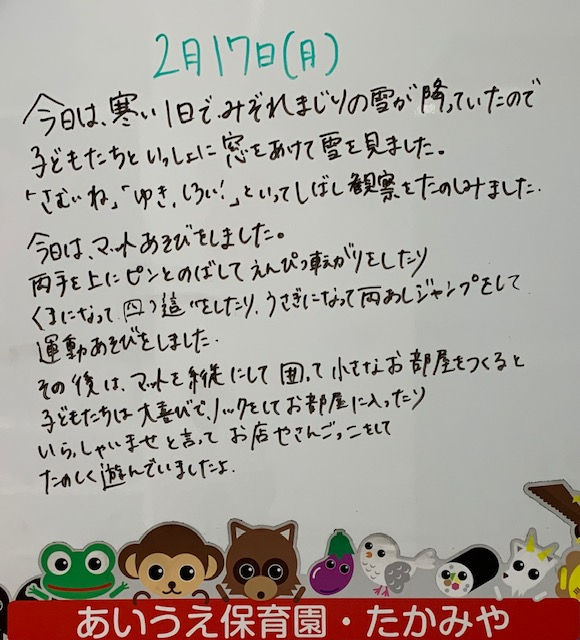 2月17日(月)
今日は、寒い1日で、みぞれまじりの雪が降っていたので
子どもたちといっしょに窓をあけて雪を見ました。
「さむいね」「ゆき、しろい!」といってしばし観察をたのしみました。
今日は、マットあそびをしました。
両手を上にピンとのばしてえんぴつ転がりをしたり
くまになって四つ這いをしたり、うさぎになって両あしジャンプをして
運動あそびをしました。
その後は、マットを縦にして囲って小さなお部屋をつくると
子どもたちは大喜びで、ノックをしてお部屋に入ったり
いらっしゃいませと言ってお店やさんごっこをして
たのしく遊んでいましたよ。
あいうえ保育園・たかみや